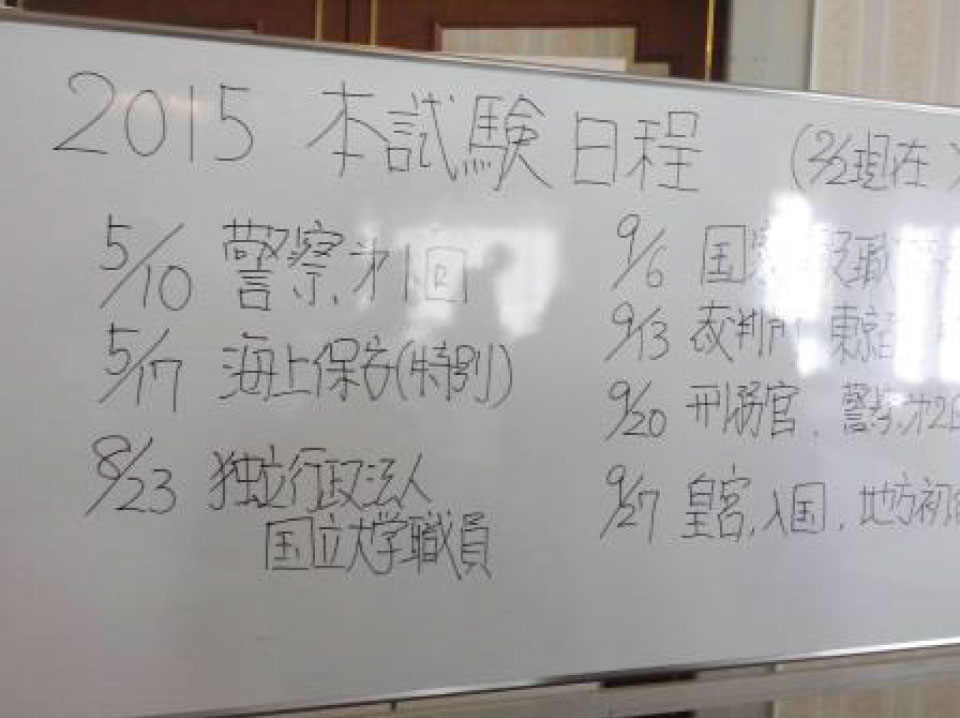 2015 本試験日程 (2/2現在)
5/10 警察.才1回
5/17 海上保安(特別)
8/23 独立行政法人
国立大学職員
9/6 国家一般職
9/13 裁判所、東京
9/20 刑務官、警察.才2回
9/27 皇宮、入国、地方初